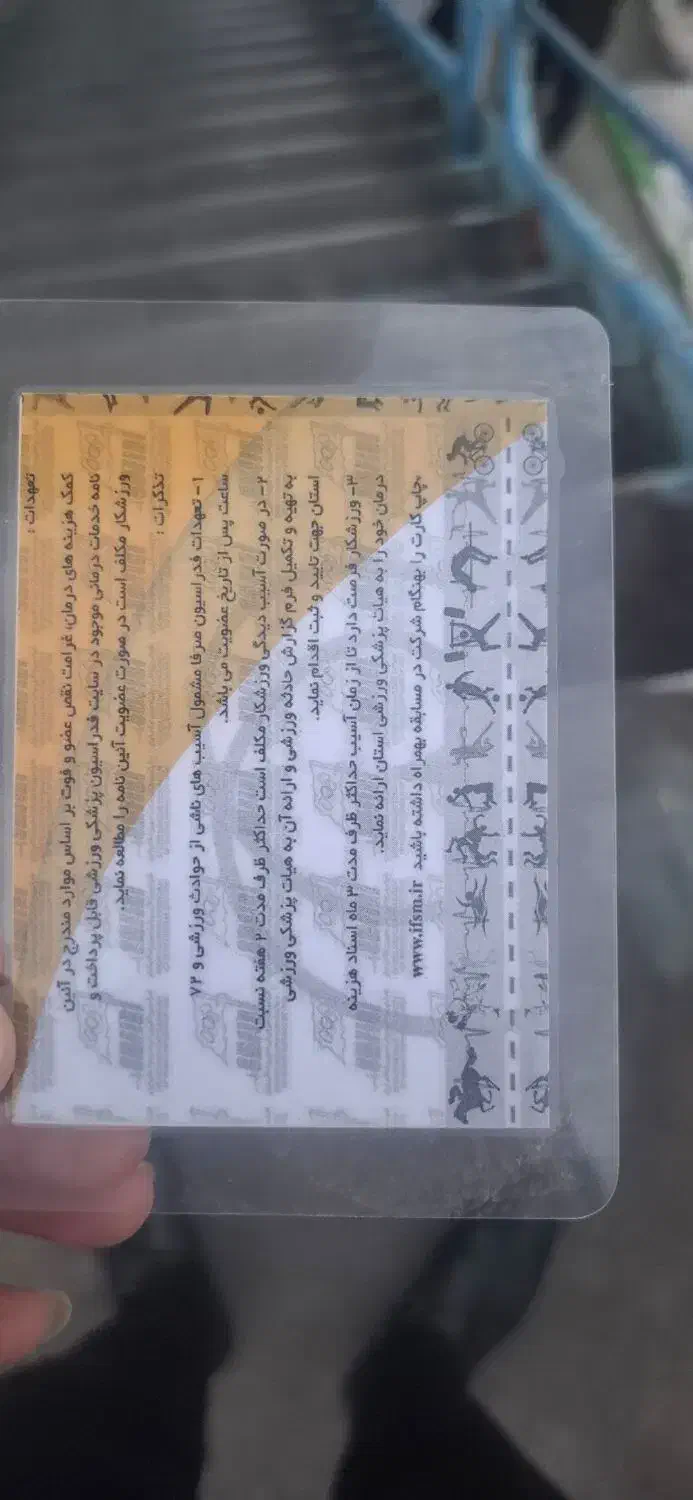 تعهدات :
کمک هزینه های درمان، غرامت نقص عضو و فوت بر اساس موارد مندرج در آئین
نامه خدمات درمانی موجود در سایت فدراسیون پزشکی ورزشی قابل پرداخت و
ورزشکار مکلف است در صورت عضویت آئین نامه را مطالعه نماید.
تذکرات :
۱- تعهدات فدراسیون صرفا مشمول آسیب های ناشی از حوادث ورزشی و ۷۲
ساعت پس از تاریخ عضویت می باشد.
۲- در صورت آسیب دیدگی ورزشکار مکلف است حداکثر ظرف مدت ۲ هفته نسبت
به تهیه و تکمیل فرم گزارش حادثه ورزشی و ارائه آن به هیات پزشکی ورزشی
استان جهت تایید و ثبت اقدام نماید.
۳- ورزشکار فرصت دارد تا از زمان آسیب حداکثر ظرف مدت ۳ ماه اسناد هزینه
درمان خود را به هیات پزشکی ورزشی استان ارائه نماید.
چاپ کارت را بهنگام شرکت در مسابقه بهمراه داشته باشید www.ifsm.ir